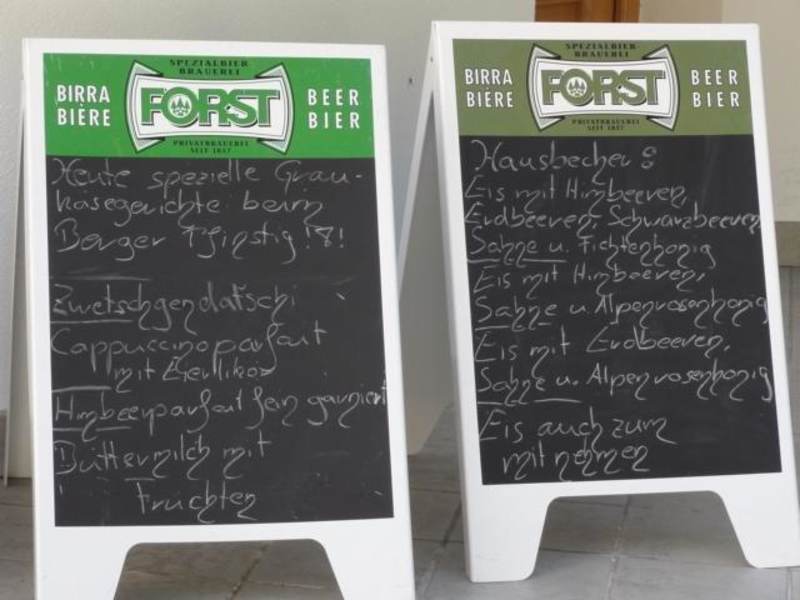 SPEZIALBIER
BRAUEREI
BIRRA
BIÈRE
FORST
BEER
BIER
PRIVATBRAUEREI
SEIT 1857
Heute spezielle Grau-
käsegerichte beim
Berger
Zwetschgendatschi
Cappuccinoparfait
mit Eierlikör
Himbeerparfait fein garniert
Buttermilch mit
Fruchten
SPEZIALBIER
BRAUEREI
BIRRA
BIÈRE
FORST
BEER
BIER
PRIVATBRAUEREI
SEIT 1857
Hausbecher:
Eis mit Himbeeren,
Erdbeeren, Schwarzbeeren
Sahne u. Fichtenhonig
Eis mit Himbeeren,
Sahne u. Alpenrosenhonig
Eis mit Erdbeeren,
Sahne u. Alpenrosenhonig
Eis auch zum
mitnehmen